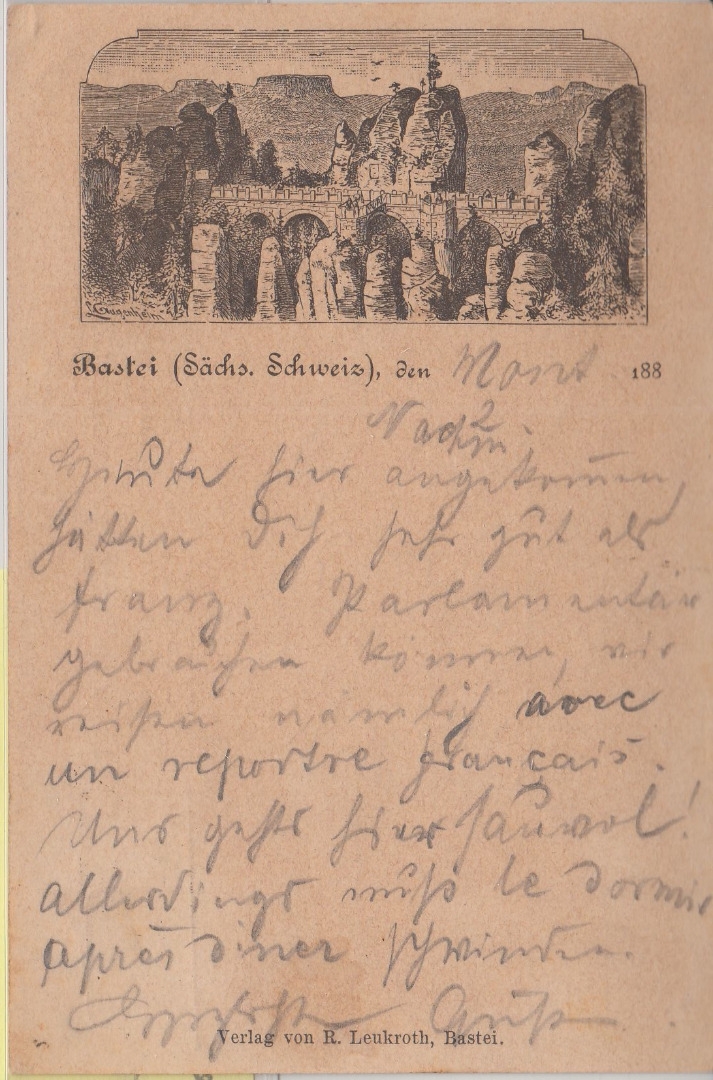 Bastei (Sächs. Schweiz), den Mont 188
Nachm. 2
Heute hier angekommen,
hätten Dich sehr gut als
franz. Parlamentär
gebrauchen können, wir
reisen nämlich avec
un reportre français.
Uns gehts hier sauwol!
Allerdings muß le dormir
après diner schwinden.
Grüße
Verlag von R. Leukroth, Bastei.